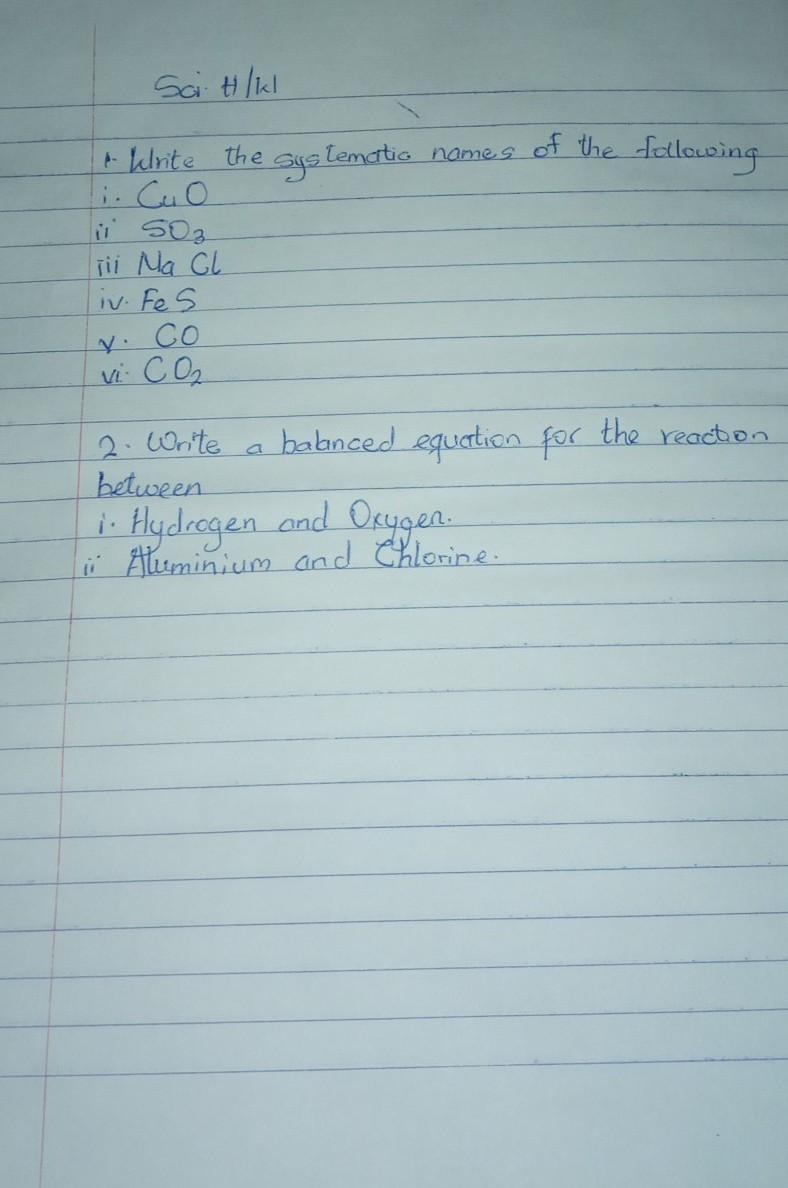 Sci H/W
1. Write the systematic names of the following
i. CuO
ii SO3
iii NaCl
iv. FeS
v. CO
vi. CO2
2. Write a balanced equation for the reaction
between
i. Hydrogen and Oxygen.
ii Aluminium and Chlorine.